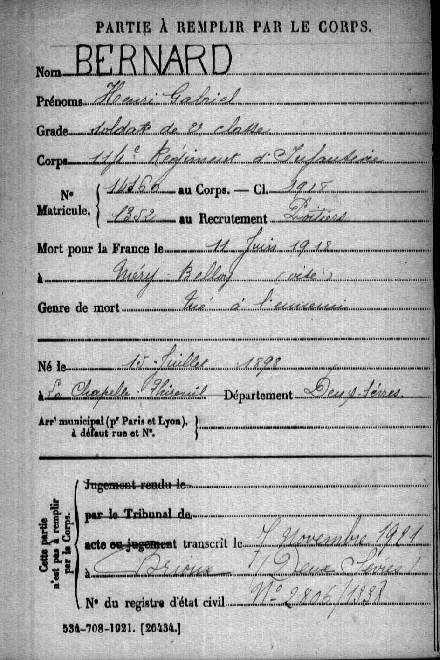 PARTIE À REMPLIR PAR LE CORPS.
Nom BERNARD
Prénoms Henri Gabriel
Grade soldat de 2e classe
Corps 114e Régiment d'Infanterie
No Matricule. { 14166 au Corps. — Cl. 1918
1352 au Recrutement Poitiers
Mort pour la France le 11 Juin 1918
à Méry Belloy (oise)
Genre de mort Tué à l'ennemi
Né le 15 Juillet 1898
à La Chapelle Thireuil Département Deux-Sèvres.
Arrt municipal (pr Paris et Lyon), à défaut rue et No. }
Cette partie n'est pas à remplir par le Corps. {
Jugement rendu le
par le Tribunal de
acte ou jugement transcrit le 7 Novembre 1921
à Brioux (Deux Sèvres)
No du registre d'état civil No 2806/1338
534-708-1921. [26434.]